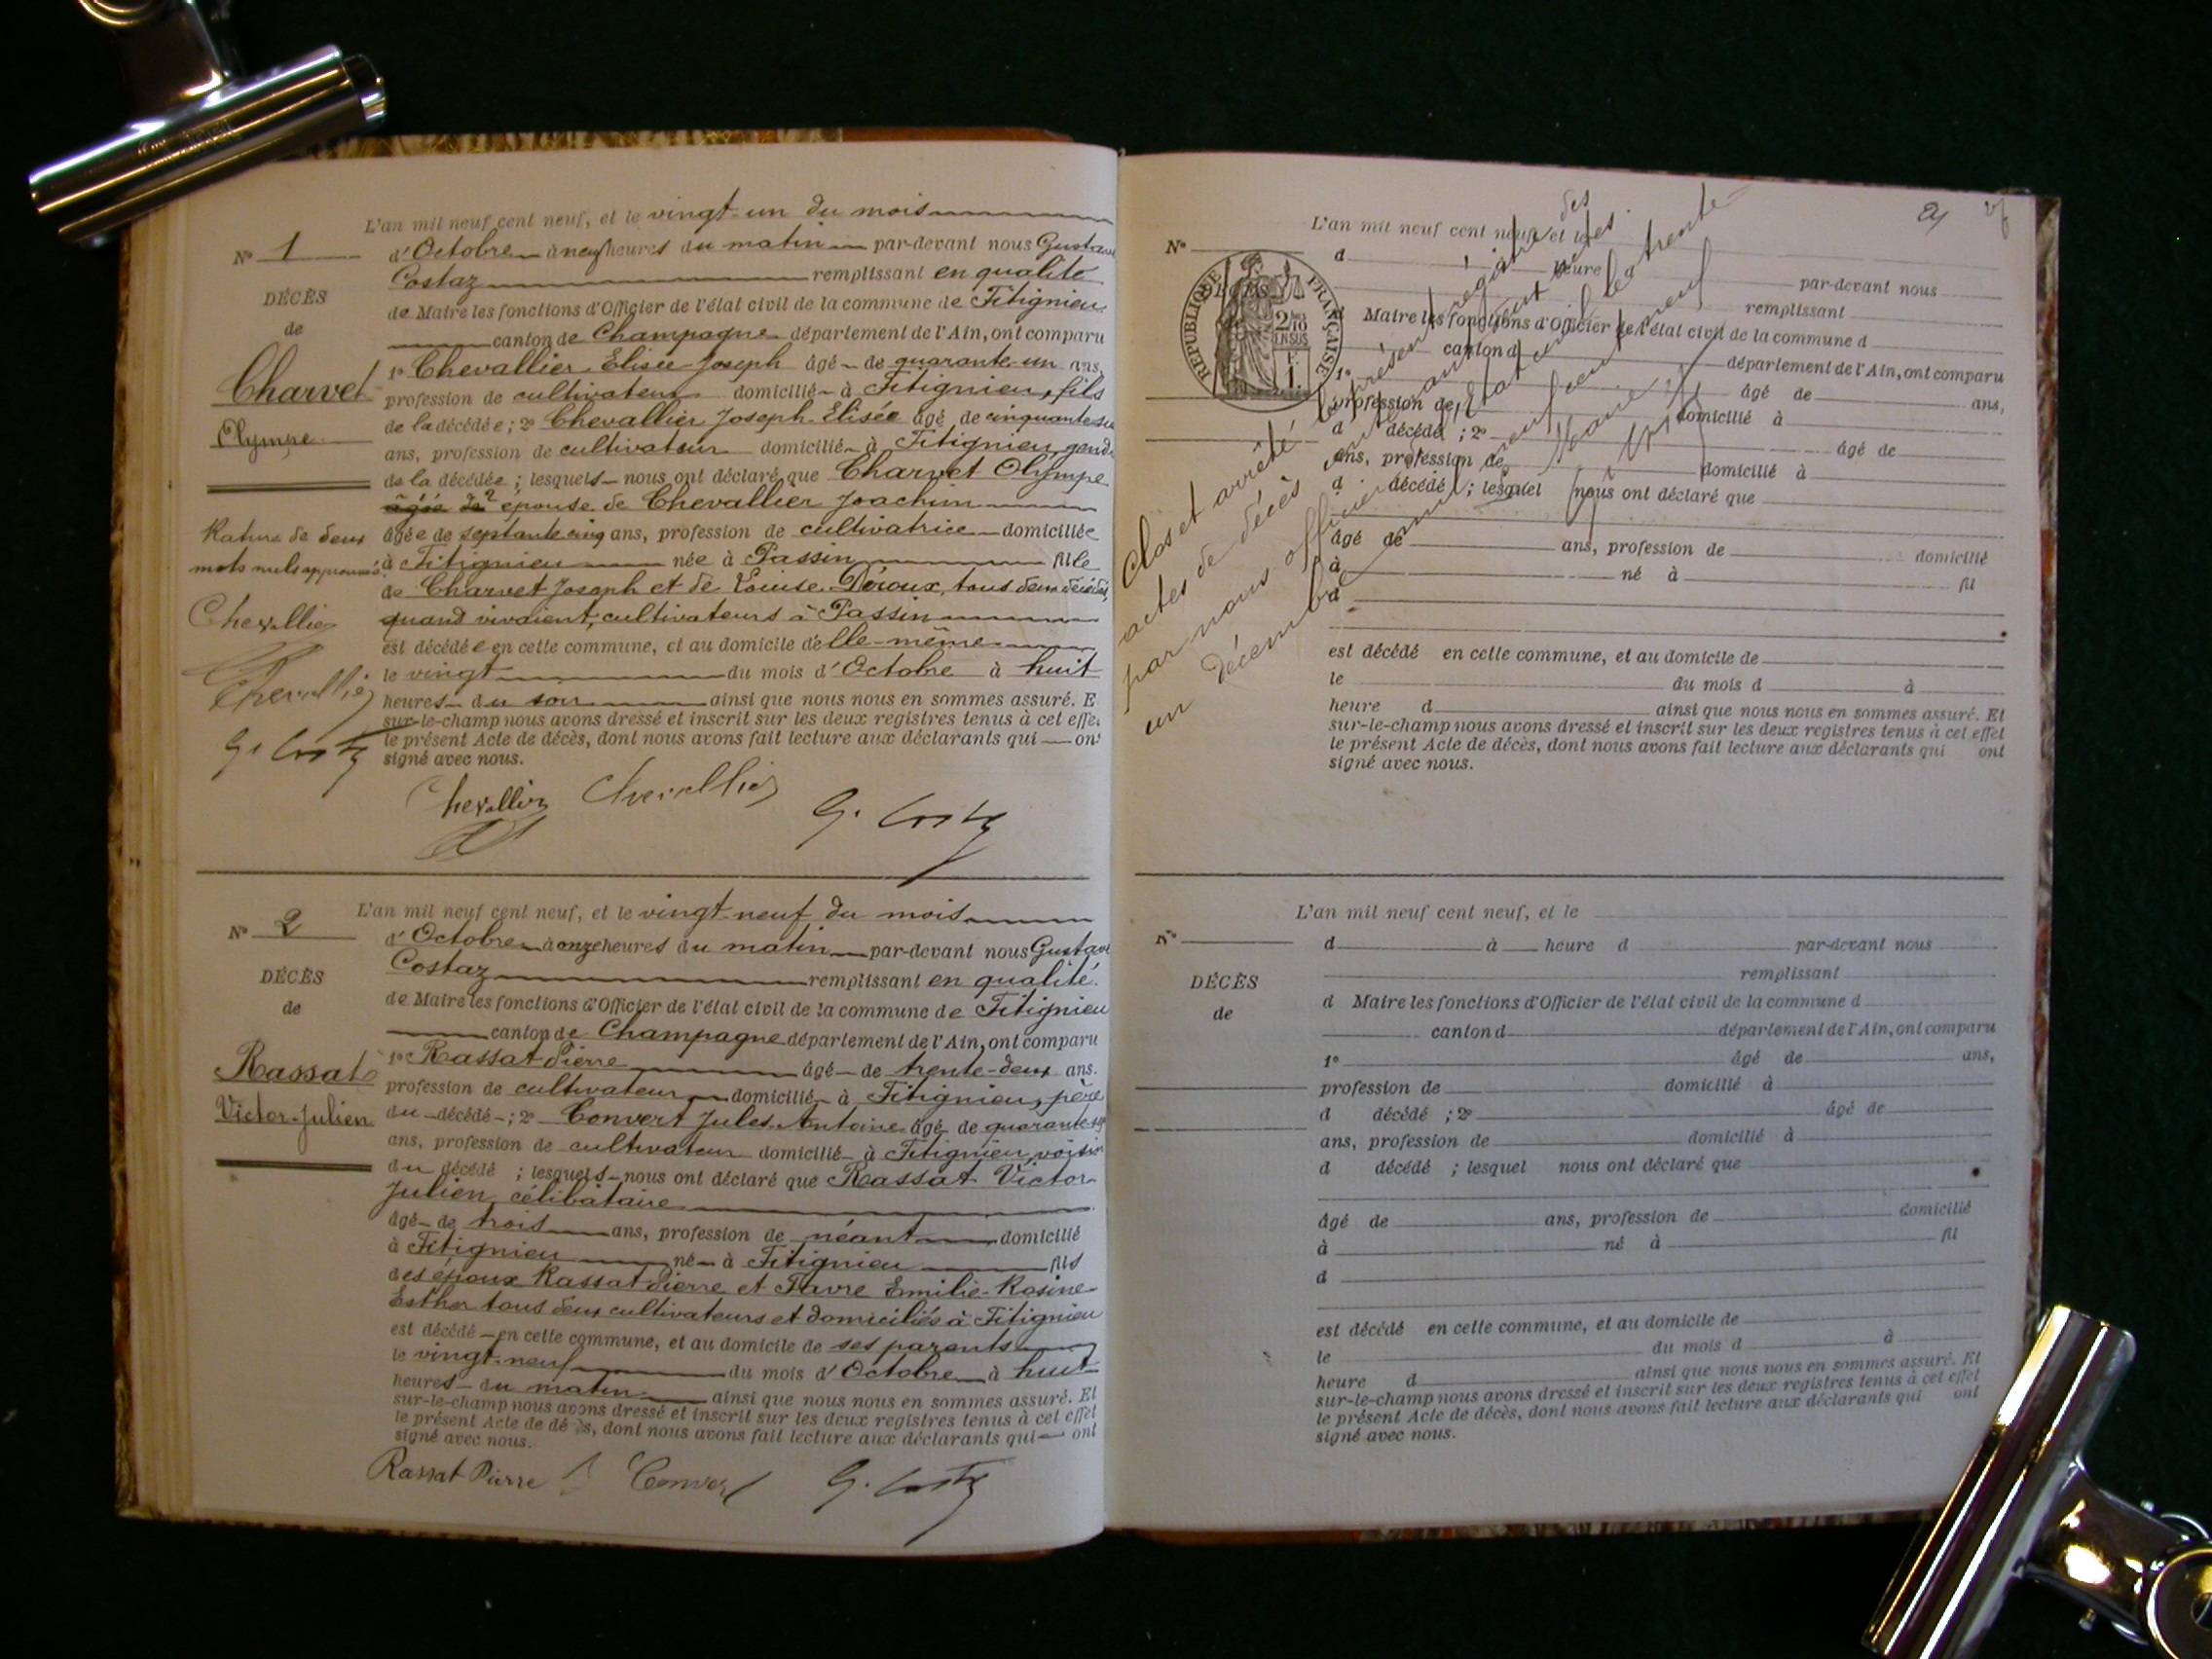 L'an mil neuf cent neuf, et le vingt-un du mois
N° 1
d'Octobre à neuf heures du matin par-devant nous Gustave
Costaz remplissant en qualité
DÉCÈS
de Maire les fonctions d'Officier de l'état civil de la commune de Fitignieu
de
canton de Champagne département de l'Ain, ont comparu
1° Chevallier Elisée Joseph âgé de quarante-un ans,
Charvet
profession de cultivateur domicilié à Fitignieu, fils
de la décédée ; 2° Chevallier Joseph Elisée âgé de cinquante
Olympe
ans, profession de cultivateur domicilié à Fitignieu, gend
de la décédée ; lesquels nous ont déclaré que Charvet Olympe
âgée de épouse de Chevallier Joachim
Rature de deux
mots nuls approuvés
âgée de septante cinq ans, profession de cultivatrice domiciliée
à Fitignieu née à Passin fille
de Charvet Joseph et de Louise Déroux, tous deux décédés,
Chevallier
quand vivaient, cultivateurs à Passin
est décédée en cette commune, et au domicile d'elle-même
le vingt du mois d'Octobre à huit
Chevallier
heures du soir ainsi que nous nous en sommes assuré. E
sur-le-champ nous avons dressé et inscrit sur les deux registres tenus à cet effe
G. Costaz
le présent Acte de décès, dont nous avons fait lecture aux déclarants qui on
signé avec nous.
Chevallier Chevallier G. Costaz
L'an mil neuf cent neuf, et le vingt-neuf du mois
N° 2
d'Octobre à onze heures du matin par-devant nous Gustave
Costaz remplissant en qualité
DÉCÈS
de Maire les fonctions d'Officier de l'état civil de la commune de Fitignieu
de
canton de Champagne département de l'Ain, ont comparu
1° Rassat Pierre âgé de trente-deux ans.
Rassat
profession de cultivateur domicilié à Fitignieu, père
Victor-Julien
du décédé ; 2° Convert Jules Antoine âgé de quarante
ans, profession de cultivateur domicilié à Fitignieu, voisin
du décédé ; lesquels nous ont déclaré que Rassat Victor
Julien, célibataire
âgé de trois ans, profession de néant domicilié
à Fitignieu né à Fitignieu fils
des époux Rassat Pierre et Favre Emilie-Rosine-
Esther tous deux cultivateurs et domiciliés à Fitignieu
est décédé en cette commune, et au domicile de ses parents
le vingt-neuf du mois d'Octobre à huit
heures du matin ainsi que nous nous en sommes assuré. Et
sur-le-champ nous avons dressé et inscrit sur les deux registres tenus à cet effet
le présent Acte de décès, dont nous avons fait lecture aux déclarants qui ont
signé avec nous.
Rassat Pierre Convert G. Costaz
L'an mil neuf cent neuf, et le
N°
d heure
par-devant nous
remplissant
RÉPUBLIQUE FRANÇAISE
Maire les fonctions d'Officier de l'état civil de la commune d
canton d département de l'Ain, ont comparu
1° âgé de ans,
profession de domicilié à
d décédé ; 2° âgé de
ans, profession de domicilié à
d décédé ; lesquel nous ont déclaré que
âgé de ans, profession de domicilié
à né à fil
d
est décédé en cette commune, et au domicile de
le du mois d à
heure d ainsi que nous nous en sommes assuré. Et
sur-le-champ nous avons dressé et inscrit sur les deux registres tenus à cet effet
le présent Acte de décès, dont nous avons fait lecture aux déclarants qui ont
signé avec nous.
Clos et arrêté le présent registre des
actes de décès
par nous officier de l'État civil le trente
un décembre mil neuf cent neuf
L'an mil neuf cent neuf, et le
N°
d à heure d par-devant nous
remplissant
DÉCÈS
d Maire les fonctions d'Officier de l'état civil de la commune d
de
canton d département de l'Ain, ont comparu
1° âgé de ans,
profession de domicilié à
d décédé ; 2° âgé de
ans, profession de domicilié à
d décédé ; lesquel nous ont déclaré que
âgé de ans, profession de domicilié
à né à fil
d
est décédé en cette commune, et au domicile de
le du mois d à
heure d ainsi que nous nous en sommes assuré. Et
sur-le-champ nous avons dressé et inscrit sur les deux registres tenus à cet effet
le présent Acte de décès, dont nous avons fait lecture aux déclarants qui ont
signé avec nous.